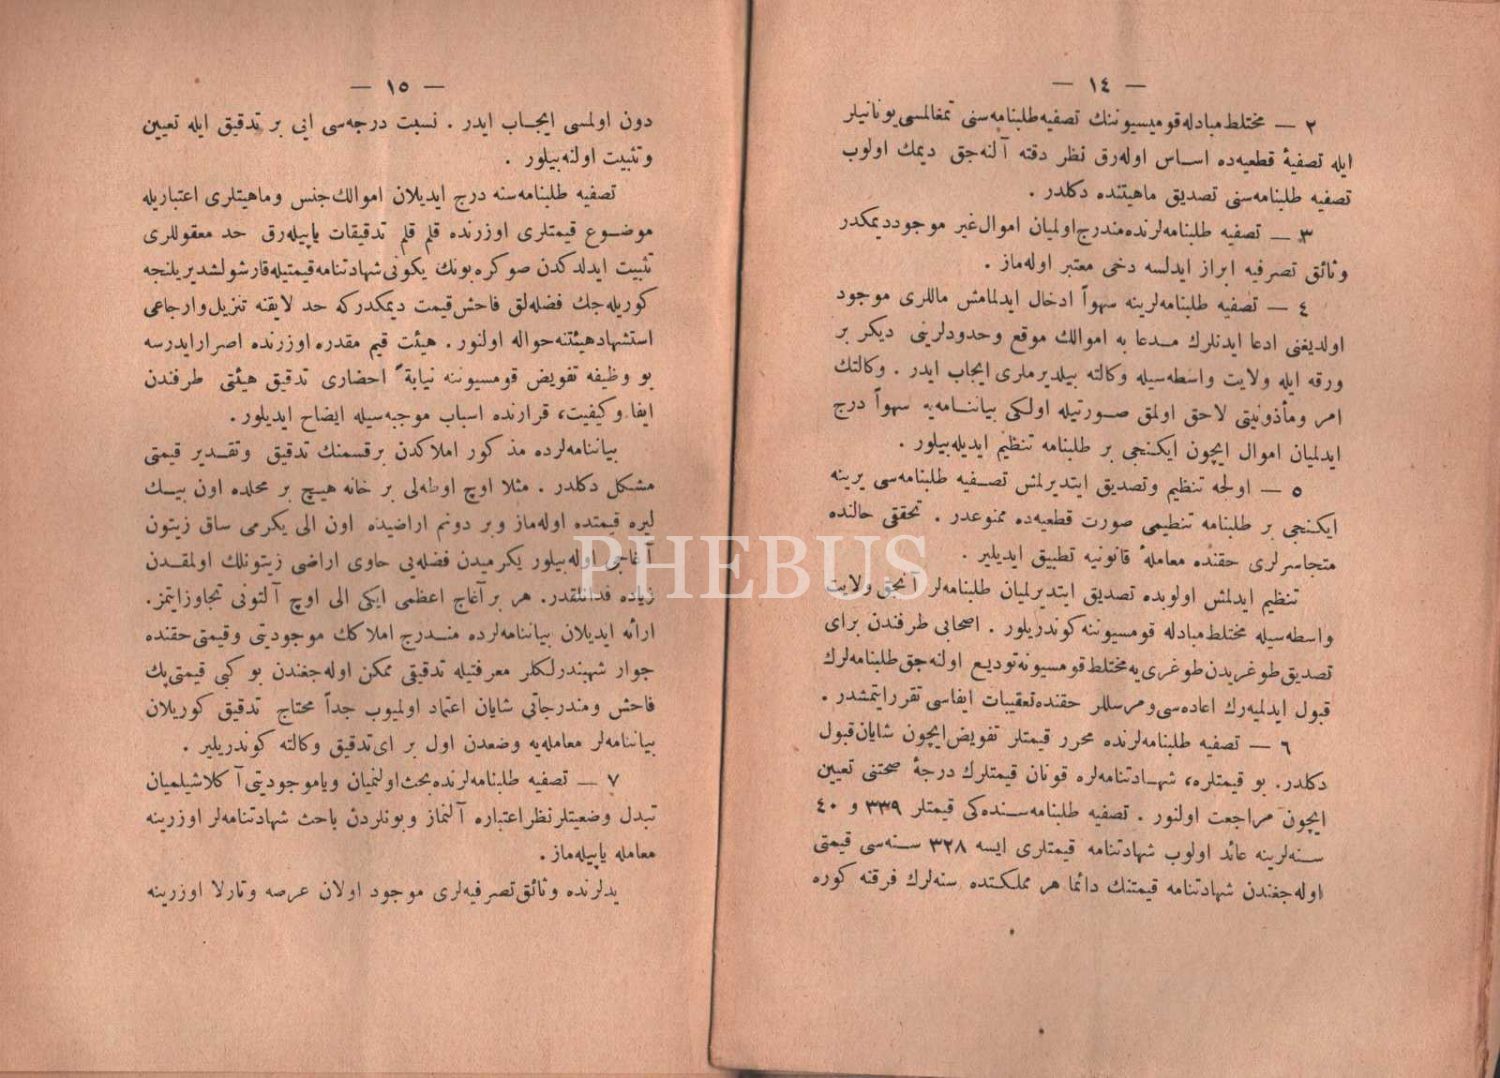 — ١٤ —
٢ — مختلط مبادله قومیسیوننك تصفیه طلبنامه‌سنی تمغالمسی یونانیلر
ایله تصفیهٔ قطعیه‌ده اساس اوله‌رق نظر دقته آلنه‌جق دیمك اولوب
تصفیه طلبنامه‌سنی تصدیق ماهیتنده دكلدر .
٣ — تصفیه طلبنامه‌لرنده مندرج اولمیان اموال غیر موجود دیمكدر
وثائق تصرفیه ابراز ایدلسه دخی معتبر اوله‌ماز .
٤ — تصفیه طلبنامه‌لرینه سهواً ادخال ایدلمامش ماللری موجود
اولدیغنی ادعا ایدنلرك مدعا به اموالك موقع وحدودلرینی دیكر بر
ورقه ایله ولایت واسطه‌سیله وكالته بیلدیرملری ایجاب ایدر . وكالتك
امر ومأذونیتی لاحق اولمق صورتیله اولكی بیاننامه‌یه سهواً درج
ایدلمیان اموال ایچون ایكنجی بر طلبنامه تنظیم ایدیله‌بیلور .
٥ — اولجه تنظیم وتصدیق ایتدیرلمش تصفیه طلبنامه‌سی یرینه
ایكنجی بر طلبنامه تنظیمی صورت قطعیه‌ده ممنوعدر . تحققی حالنده
متجاسرلری حقنده معاملهٔ قانونیه تطبیق ایدیلیر .
تنظیم ایدلمش اولوبده تصدیق ایتدیرلمیان طلبنامه‌لر آنجق ولایت
واسطه‌سیله مختلط مبادله قومسیوننه كوندریلور . اصحابی طرفندن برای
تصدیق طوغریدن طوغری‌یه مختلط قومسیونه تودیع اولنه‌جق طلبنامه‌لرك
قبول ایدلمیه‌رك اعاده‌سی ومرسللر حقنده تعقیبات ایفاسی تقرر ایتمشدر .
٦ — تصفیه طلبنامه‌لرنده محرر قیمتلر تفویض ایچون شایان قبول
دكلدر. بو قیمتلره، شهادتنامه‌لره قونان قیمتلرك درجهٔ صحتنی تعیین
ایچون مراجعت اولنور . تصفیه طلبنامه‌سنده‌كی قیمتلر ٣٣٩ و ٤٠
سنه‌لرینه عائد اولوب شهادتنامه قیمتلری ایسه ٣٢٨ سنه‌سی قیمتی
اوله‌جغندن شهادتنامه قیمتنك دائما هر مملكتده سنه‌لرك فرقنه كوره
— ١٥ —
دون اولمسی ایجاب ایدر . نسبت درجه‌سی اینی بر تدقیق ایله تعیین
وتثبیت اولنه‌بیلور .
تصفیه طلبنامه‌سنه درج ایدیلان اموالك جنس وماهیتلری اعتباریله
موضوع قیمتلری اوزرنده قلم قلم تدقیقات یاپیله‌رق حد معقوللری
تثبیت ایدلدكدن صوكره بونك یكونی شهادتنامه قیمتیله قارشولشدیریلنجه
كوریله‌جك فضله‌لق فاحش قیمت دیمكدركه حد لایقنه تنزیل وارجاعی
استشهاد هیئتنه حواله اولنور . هیئت قیم مقدره اوزرنده اصرار ایدرسه
بو وظیفه تفویض قومسیوننه نیابةً احضاری تدقیق هیئتی طرفندن
ایفا وكیفیت، قرارنده اسباب موجبه‌سیله ایضاح ایدیلور .
بیاننامه‌لرده مذكور املاكدن برقسمنك تدقیق وتقدیر قیمتی
مشكل دكلدر . مثلا اوچ اوطه‌لی بر خانه هیچ بر محلده اون بیك
لیره قیمتده اوله‌ماز وبر دونم اراضیده اون الی یكرمی ساق زیتون
آغاجی اوله‌بیلور یكرمیدن فضله‌یی حاوی اراضی زیتونلك اولمقدن
زیاده فدانلقدر. هر بر آغاج اعظمی ایكی الی اوچ آلتونی تجاوز ایتمز.
ارائه ایدیلان بیاننامه‌لرده مندرج املاكك موجودیتی وقیمتی حقنده
جوار شهبندرلكلر معرفتیله تدقیقی ممكن اوله‌جغندن بو كبی قیمتی پك
فاحش ومندرجاتی شایان اعتماد اولمیوب جداً محتاج تدقیق كوریلان
بیاننامه‌لر معامله‌یه وضعدن اول بر ای تدقیق وكالته كوندریلیر .
٧ — تصفیه طلبنامه‌لرنده بحث اولنمیان ویا موجودیتی آكلاشیلمیان
تبدل وضعیتلر نظر اعتباره آلنماز وبونلردن باحث شهادتنامه‌لر اوزرینه
معامله یاپیله‌ماز .
یدلرنده وثائق تصرفیه‌لری موجود اولان عرصه وتارلا اوزرینه
PHEBUS